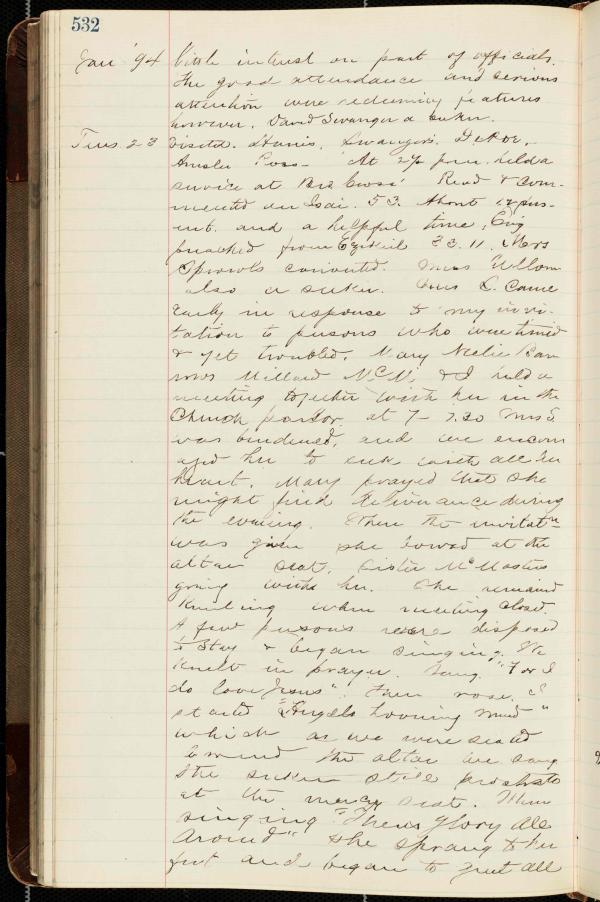 532
Jan '94 little interest on part of officials.
The good attendance and serious
attention were redeeming features
however. David Swanger a seeker.
Tues. 23 Visited. Harris, Swanger's,
At 2½ p.m. held a
service at Bro. Cross' Read & com-
mented on Isai. 53. About 12 pres-
ent. and a helpful time. Evg
preached from Ezekiel 33.11. Mrs
Sprowls converted. Miss Ullom
also a seeker. Mrs S. came
early in response to my invi-
tation to persons who were timed
& yet troubled. Mary Neelie Bar
Millard McN. & I held a
meeting together with her in the
Church parlor at 7 - 7.30 Mrs S
was burdened, and we encour
aged her to seek with all her
heart. Mary prayed that she
might find deliverance during
the evening. When the invitatn
was given she bowed at the
altar seat, Sister McMasters
going with her. She remained
Kneeling when meeting closed.
A few persons were disposed
to stay & began singing. We
knelt in prayer. Sang "For I
do love Jesus". Then rose. I
started "Angels hovering round"
which as we were seated
around the altar we sang
the seeker still prostrate
at the mercy seat. When
singing "There's glory all
around" she sprang to her
feet and began to greet all